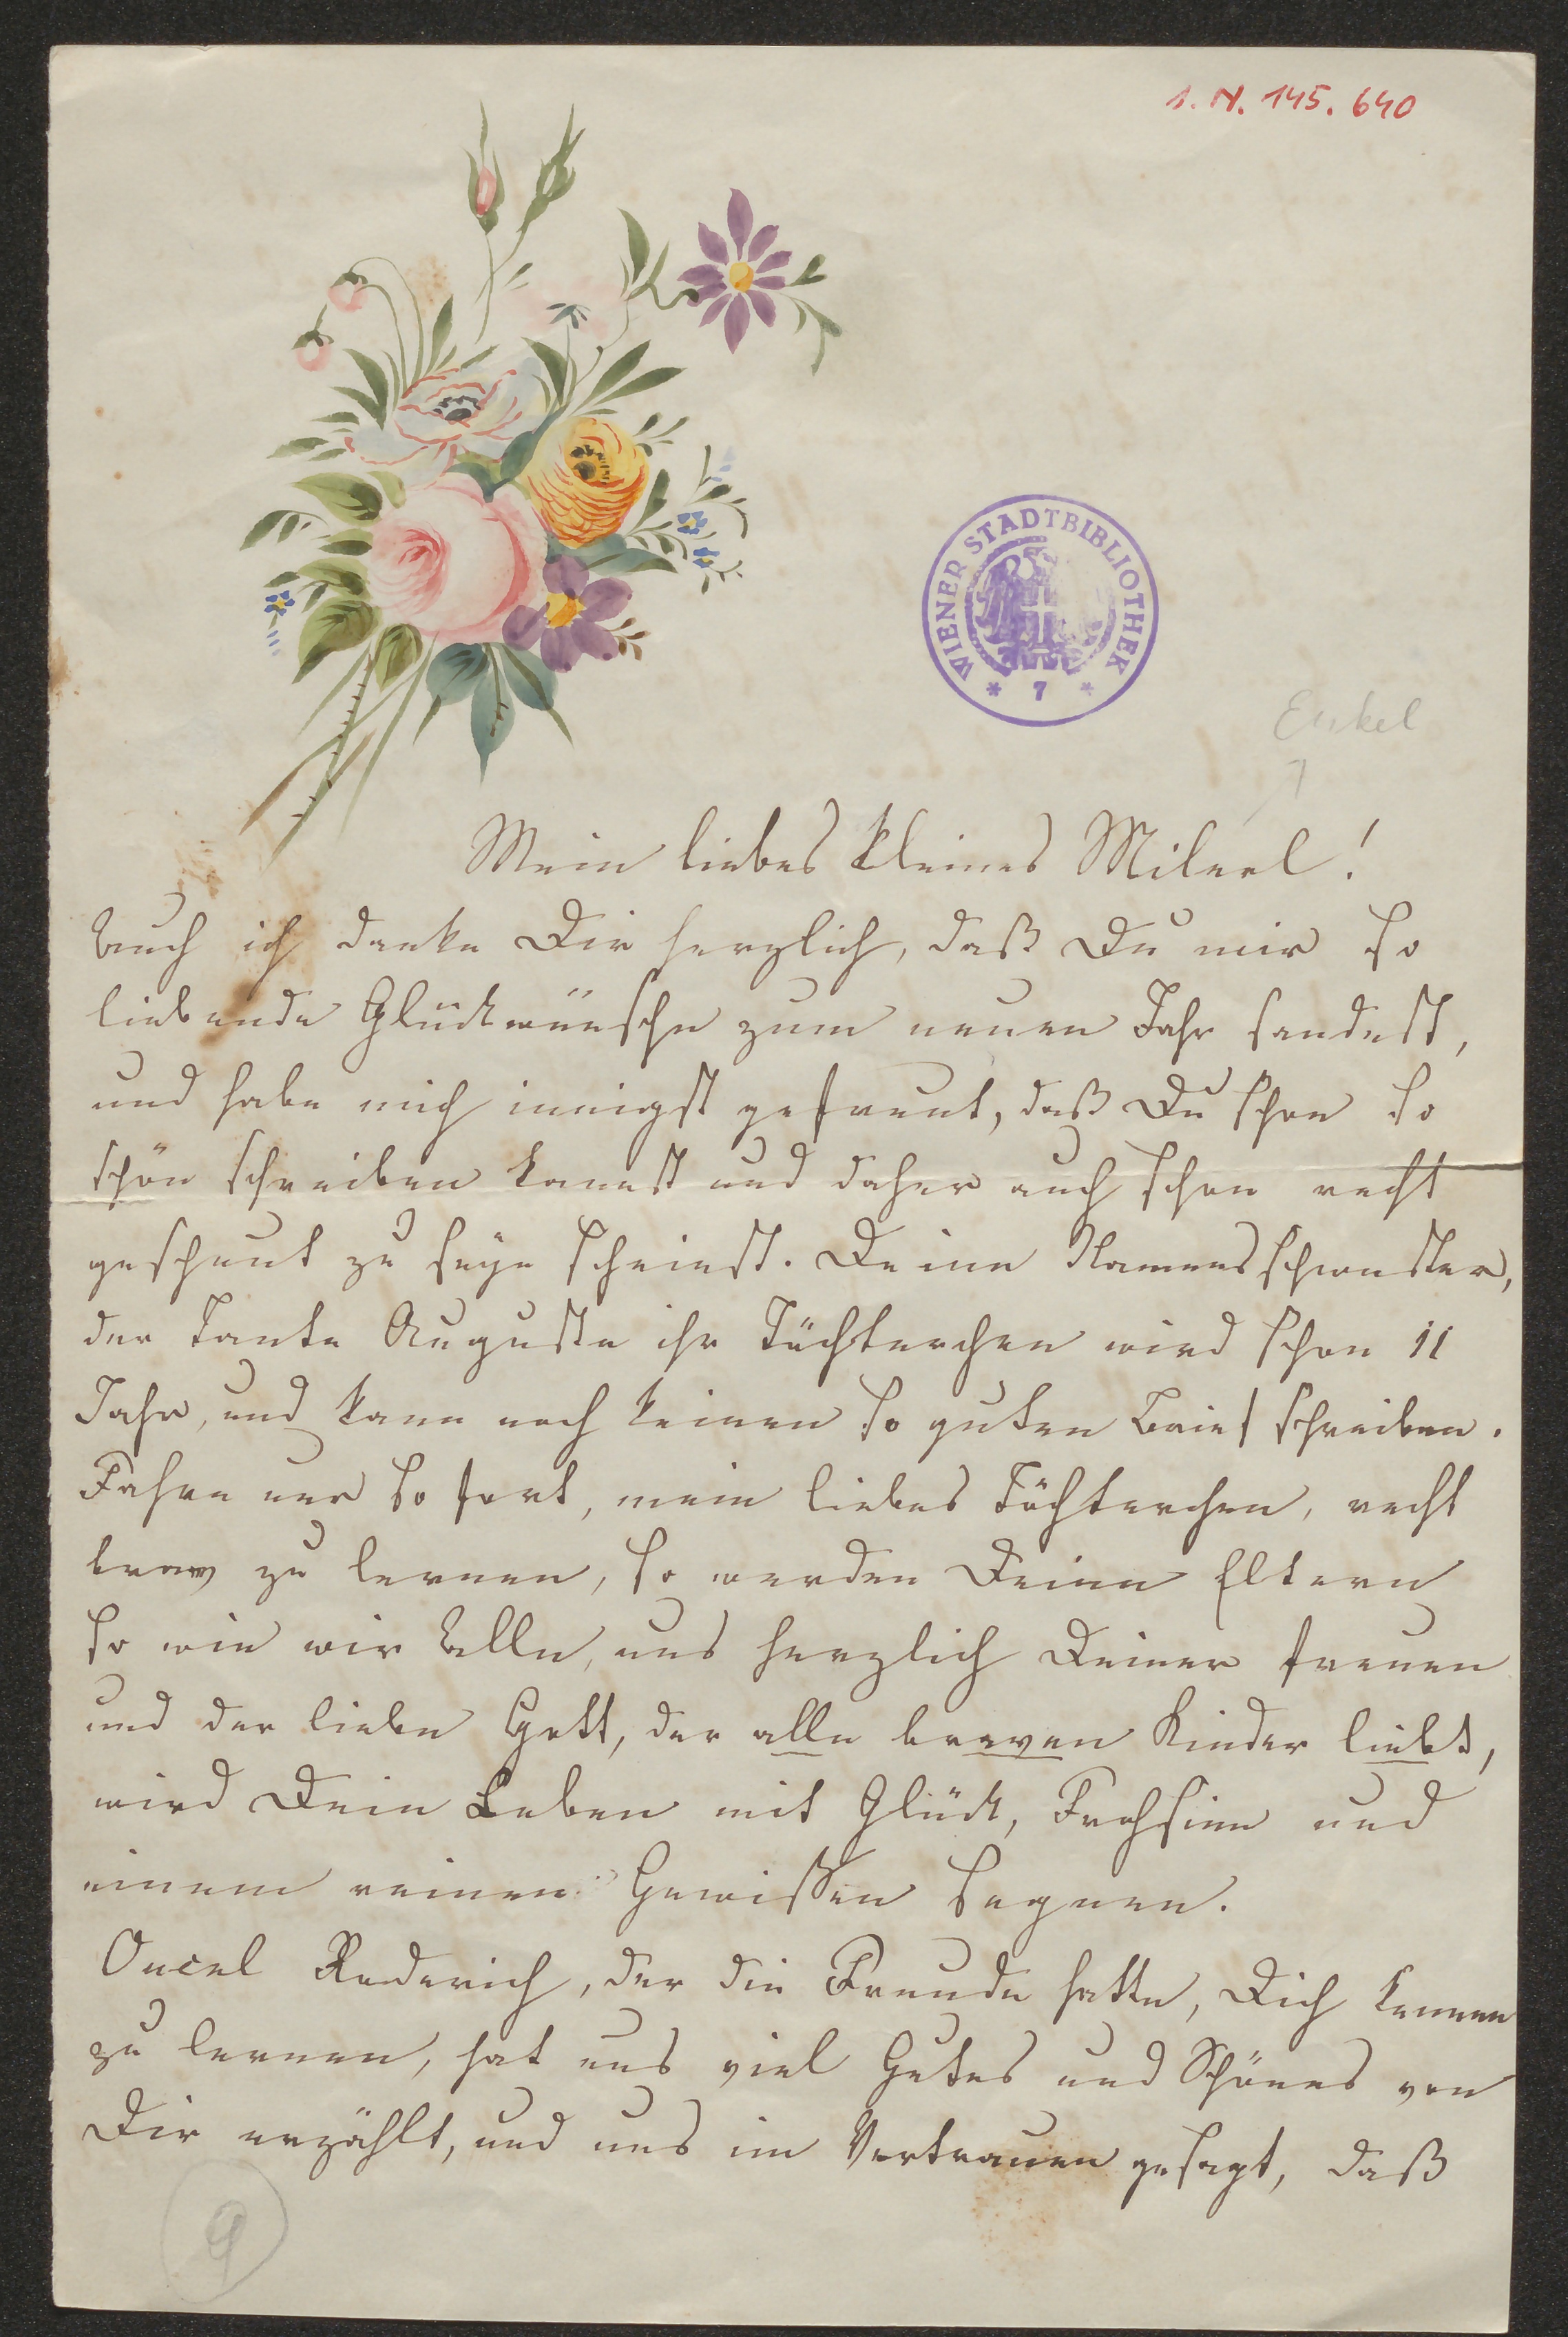 I. N. 145.640
WIENER STADTBIBLIOTHEK
* 7 *
Enkel
Mein liebes kleines Milerl!
Auch ich danke Dir herzlich, daß Du mir so
liebende Glückwünsche zum neuen Jahr sandest,
und habe mich innigst gefreut, daß Du schon so
schön schreiben kannst und daher auch schon recht
gescheut zu seyn scheinst. Deine Namensschwester,
der Tante Auguste ihr Töchterchen wird schon 11
Jahr, und kann noch keinen so guten Brief schreiben.
Fahre nur so fort, mein liebes Töchterchen, recht
brav zu lernen, so werden Deine Eltern
so wie wir Alle, uns herzlich Deiner freuen
und der liebe Gott, der alle braven Kinder liebt,
wird Dein Leben mit Glück, Frohsinn und
einem reinen Gewissen segnen.
Oncel Roderich, der die Freude hatte, Dich kennen
zu lernen, hat uns viel Gutes und Schönes von
Dir erzählt, und uns im Vertrauen gesagt, daß
9